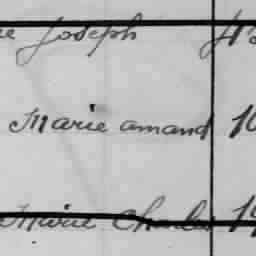 Joseph
Marie amand 10
Marie Charles